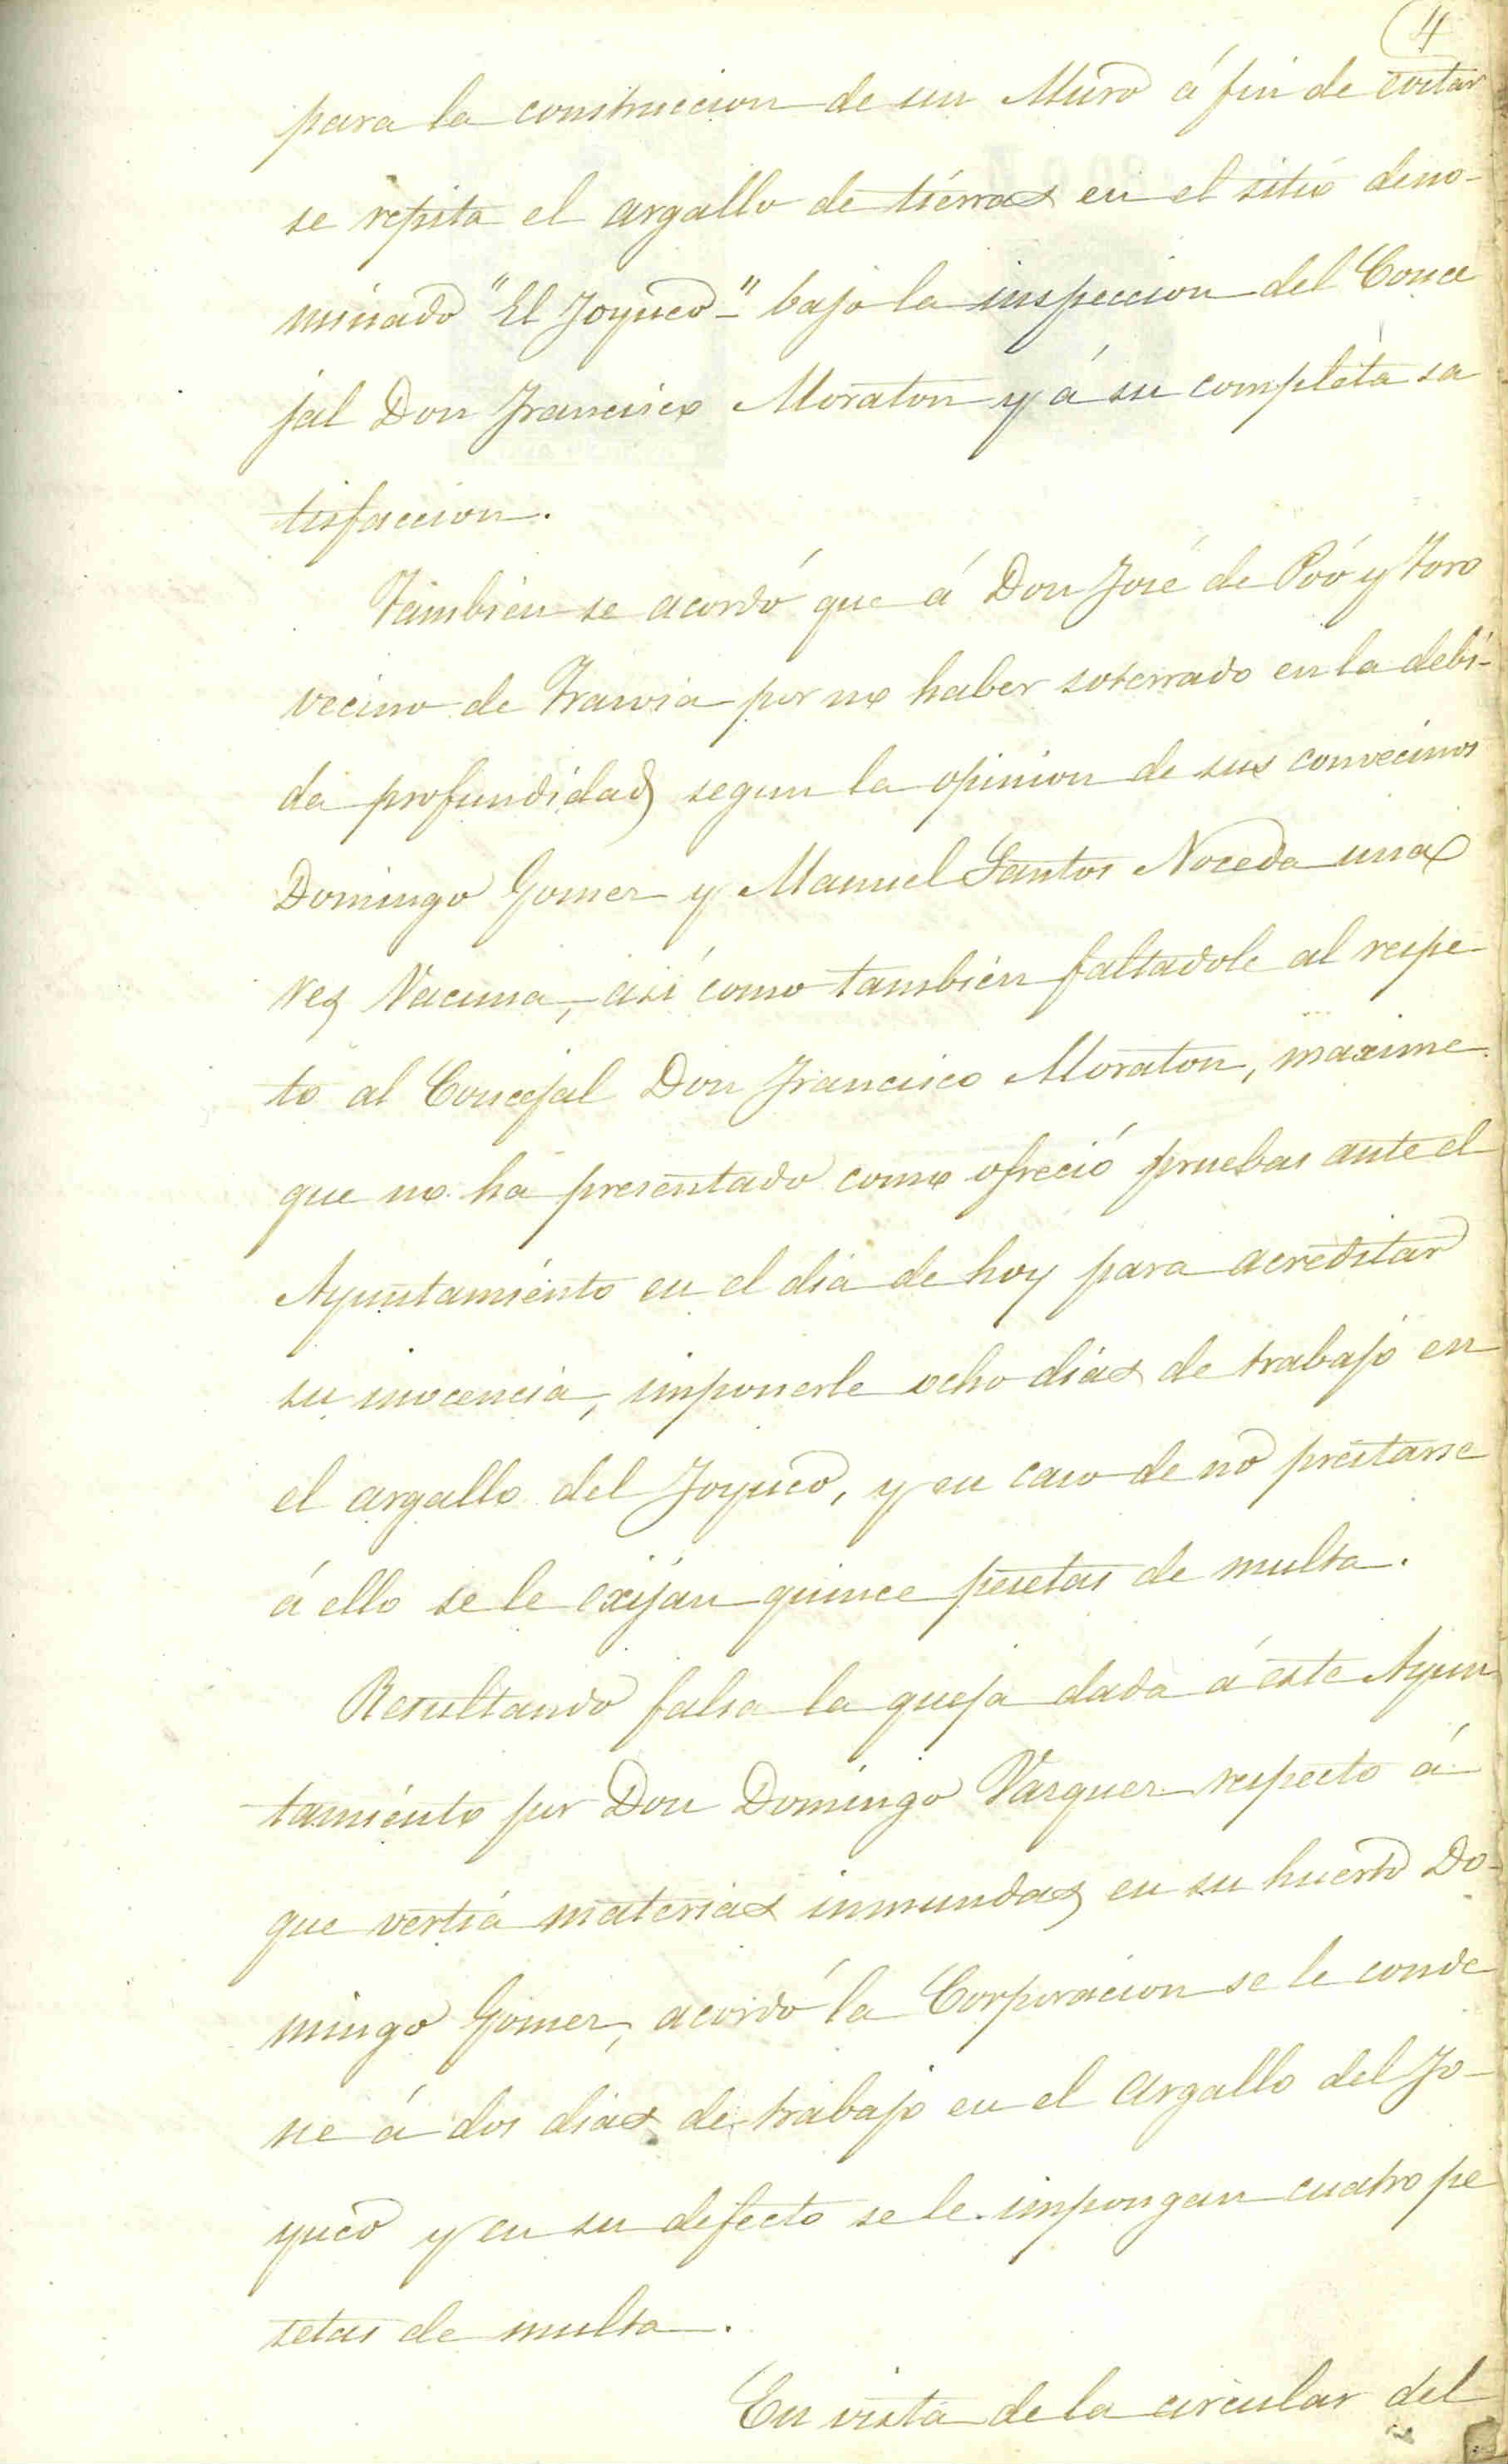 4
para la construccion de un Muro á fin de evitar
se repita el argallo de tierras en el sitio deno-
minado "El Joyuco" bajo la inspeccion del Conce
jal Don Francisco Moraton y á su completa sa
tisfaccion.
Tambien se acordó que á Don José de Poó y Toro
vecino de Franvia por no haber soterrado en la debi-
da profundidad segun la opinion de sus convecinos
Domingo Gomez y Manuel Santos Noceda una
res Vacuna, así como tambien faltadole al respe-
to al Concejal Don Francisco Moraton, maxime
que no ha presentado como ofreció pruebas ante el
Ayuntamiento en el dia de hoy para acreditar
su inocencia, imponerle ocho dias de trabajo en
el argallo del Joyuco, y en caso de no prestarse
á ello se le exijan quince pesetas de multa.
Resultando falsa la queja dada á este Ayun
tamiento por Don Domingo Vazquez respecto á
que vertia materias inmundas en su huerto Do-
mingo Gomez, acordó la Corporacion se le conde
ne á dos dias de trabajo en el Argallo del Jo-
yuco y en su defecto se le impongan cuatro pe
setas de multa.
En vista de la circular del